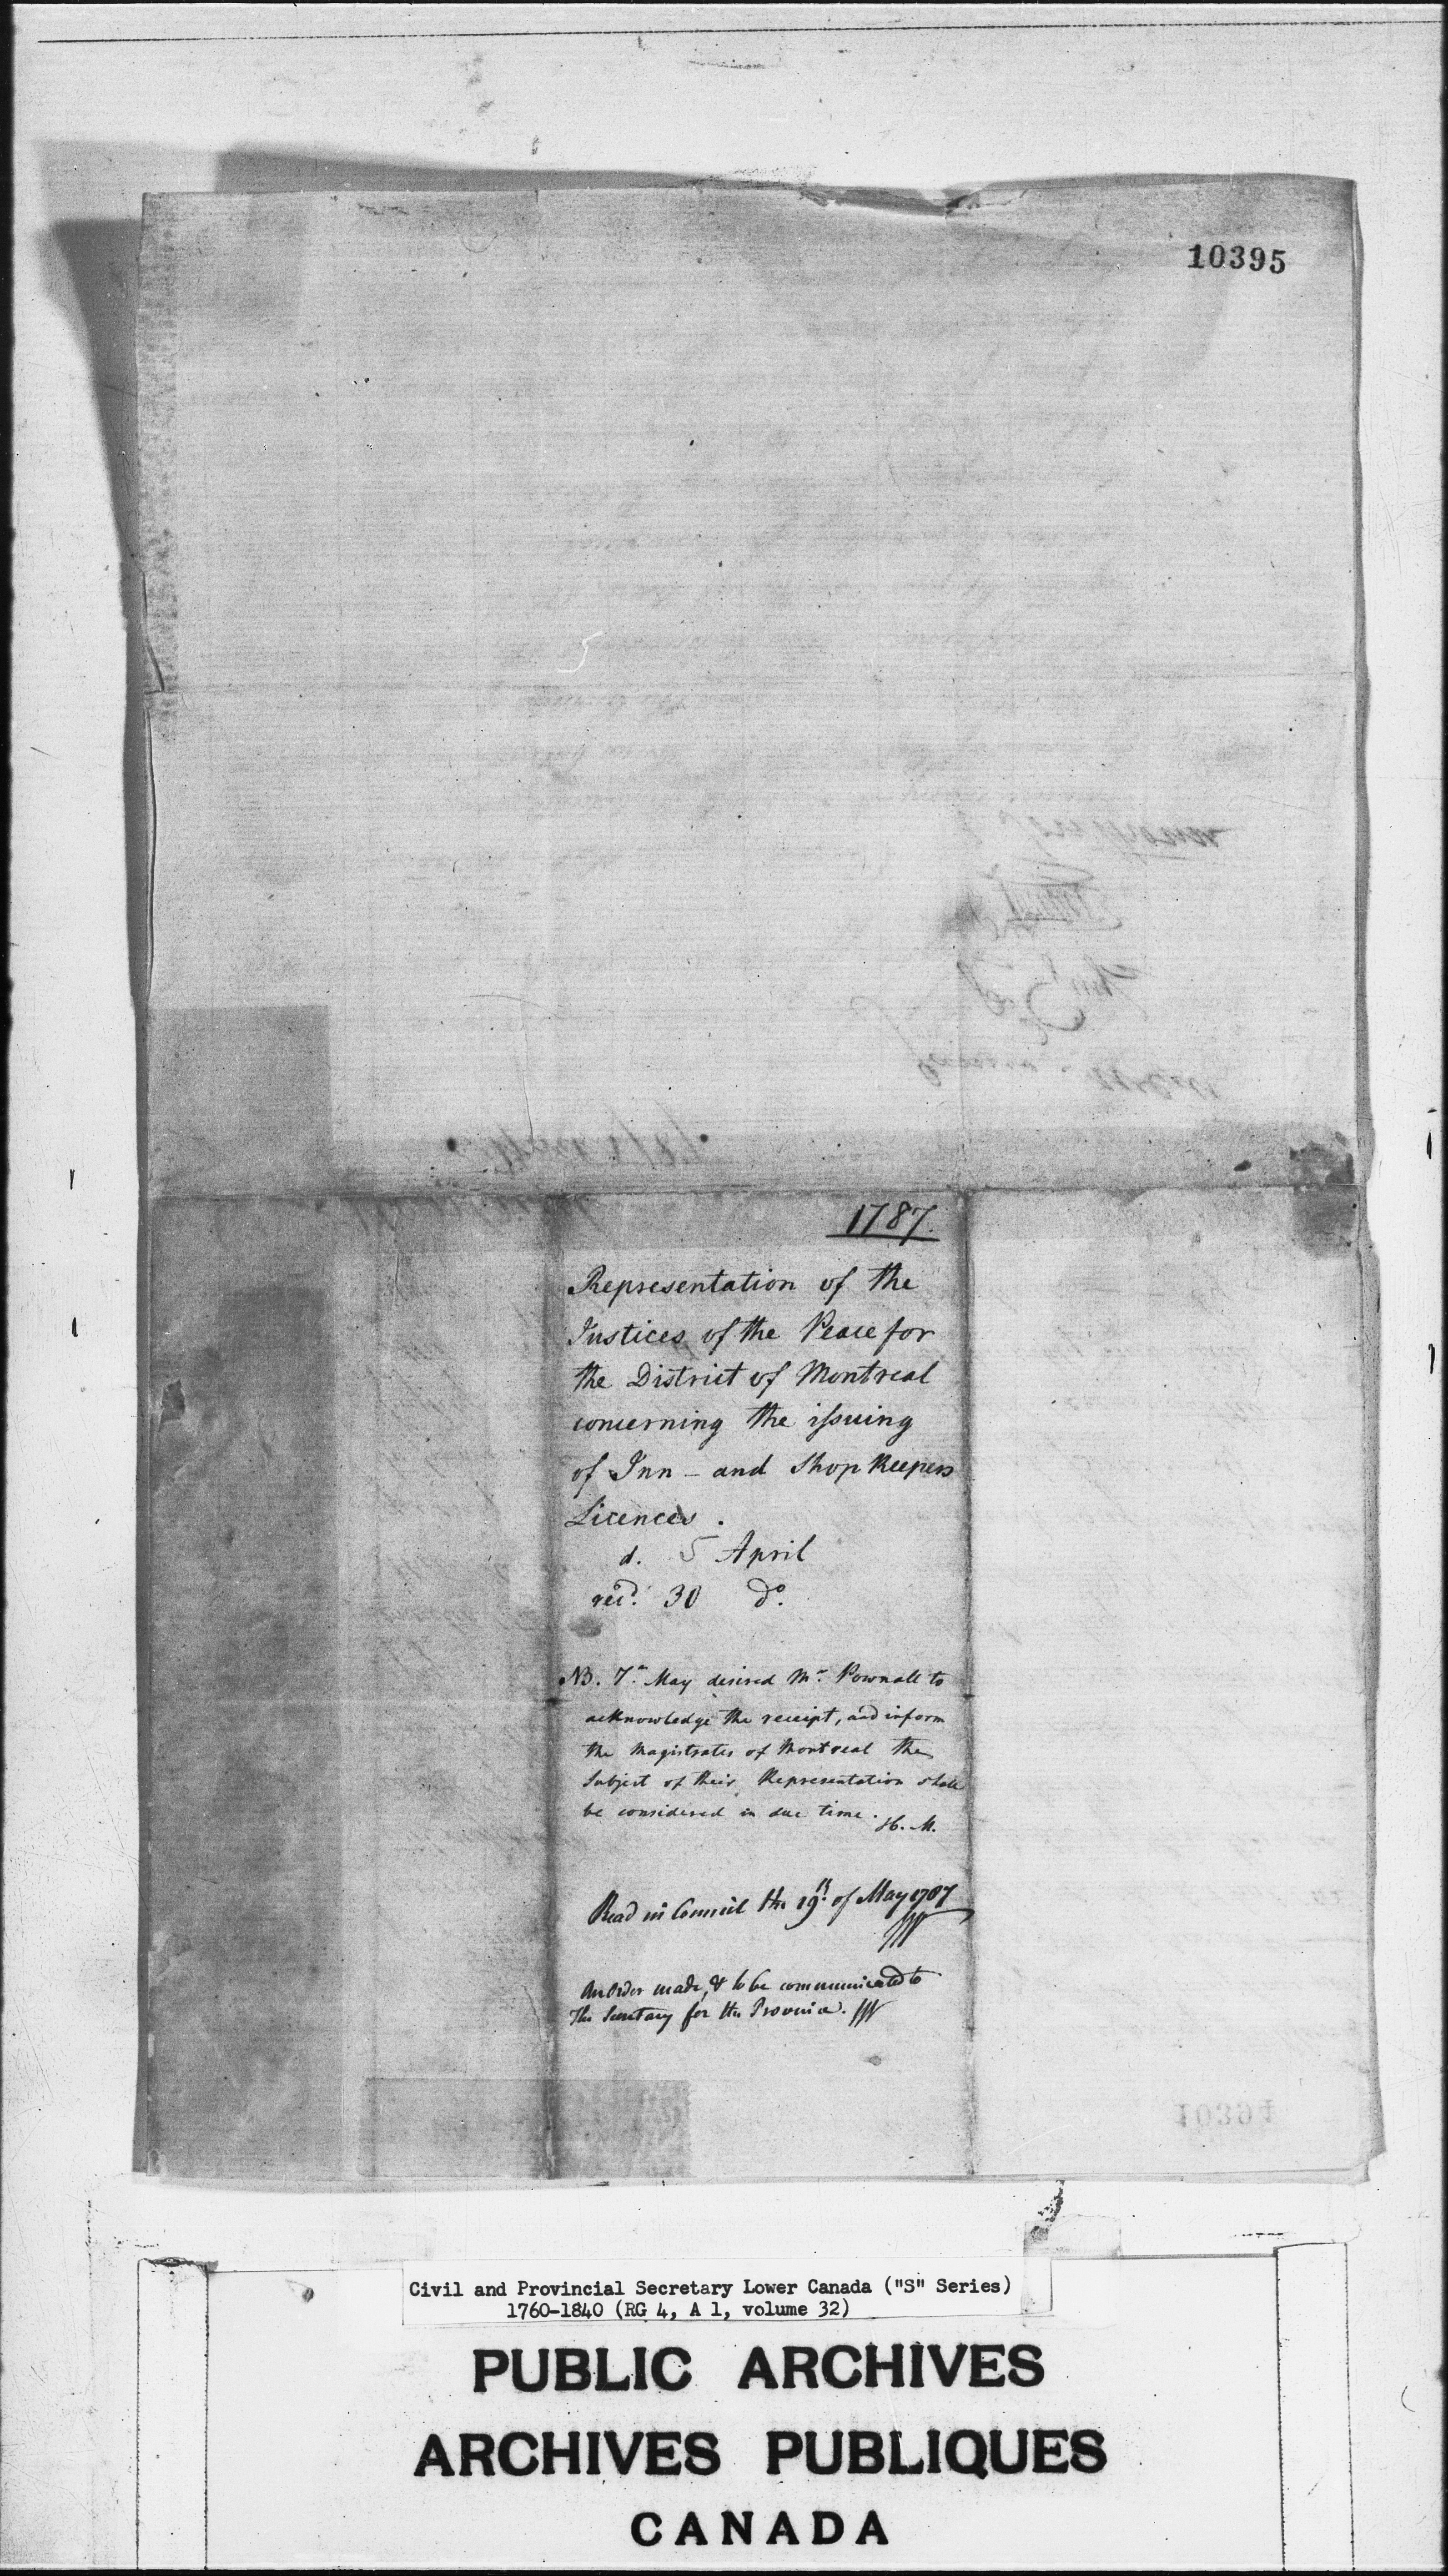 10395
1787.
Representation of the
Justices of the Peace for
the District of Montreal
concerning the issuing
of Inn - and Shop Keepers
Licences.
d. 5 April
recd. 30 do.
NB. 7th May desired Mr. Pownall to
acknowledge the receipt, and inform
the Magistrates of Montreal the
Subject of their Representation shall
be considered in due time. H. M.
Read in Council the 19th of May 1787
An Order made, & to be communicated to
The Secretary for the Province.
10394
Civil and Provincial Secretary Lower Canada ("S" Series)
1760-1840 (RG 4, A 1, volume 32)
PUBLIC ARCHIVES
ARCHIVES PUBLIQUES
CANADA